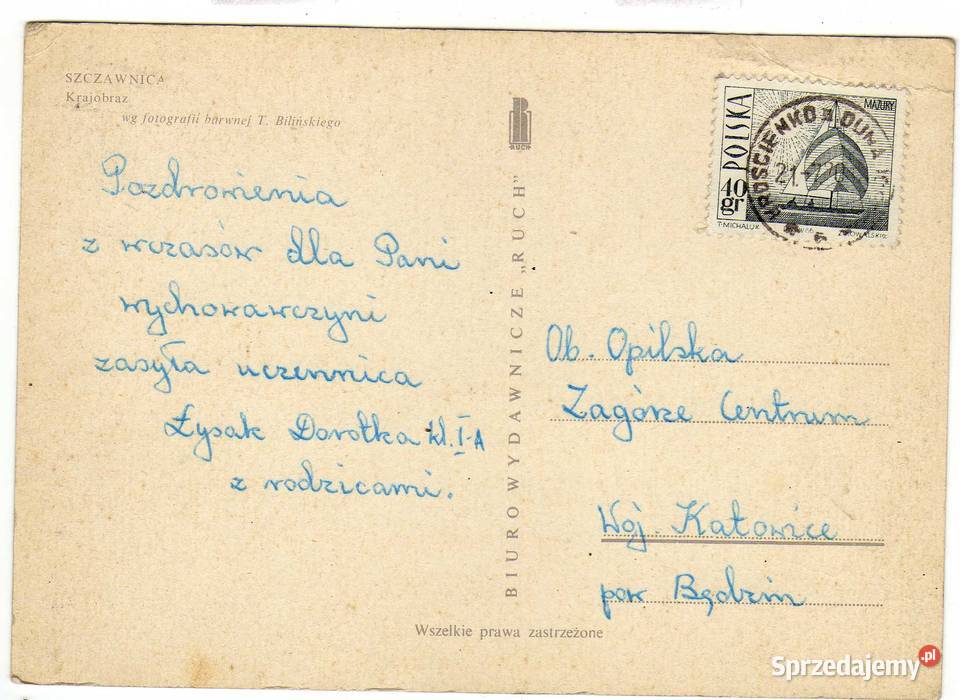 SZCZAWNICA
Krajobraz
wg fotografii barwnej T. Bilińskiego
Pozdrowienia
z wczasów dla Pani
wychowawczyni
zasyła uczennica
Łysak Dorotka kl. I-A
z rodzicami.
RUCH
BIURO WYDAWNICZE „RUCH"
POLSKA
MAZURY
40 gr
T. MICHALUK
KROŚCIENKO n DUNA
21.
Ob. Opilska
Zagórze Centrum
Woj. Katowice
pow Będzin
Wszelkie prawa zastrzeżone
Sprzedajemy.pl